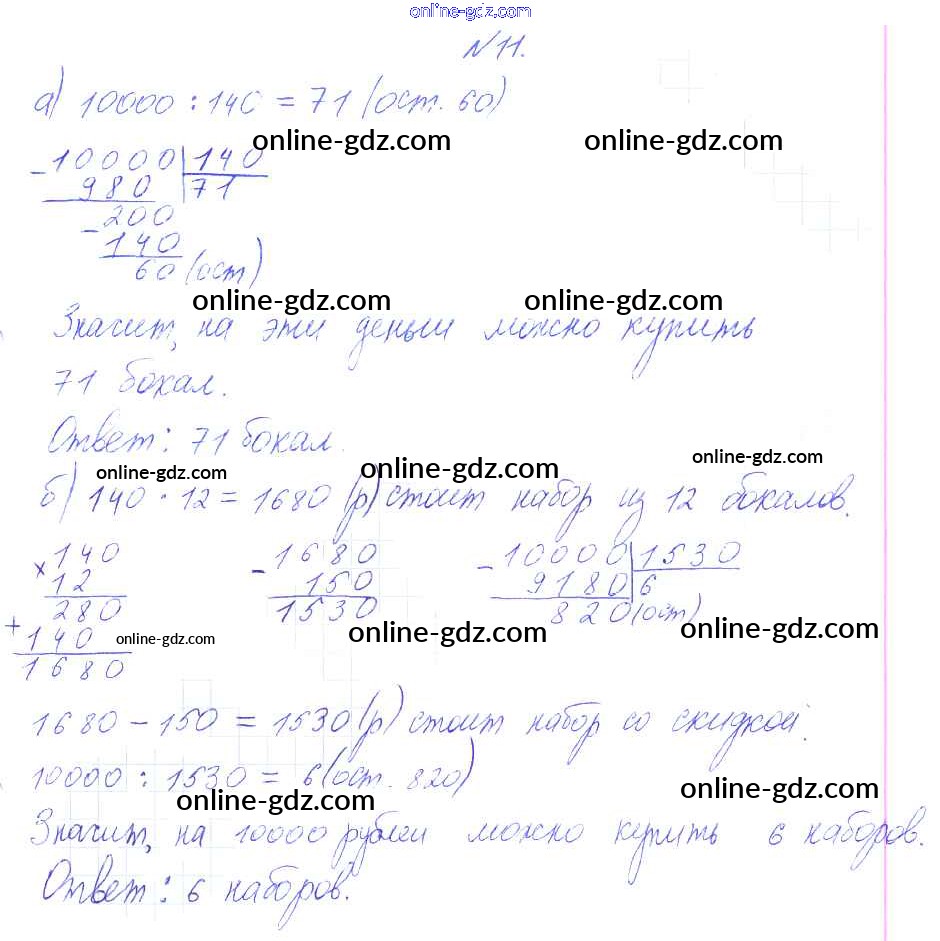 online-gdz.com
№11.
а) 10000 : 140 = 71 (ост. 60)
online-gdz.com online-gdz.com
- 10000 | 140
980 71
- 200
140
60 (ост)
online-gdz.com online-gdz.com
Значит, на эти деньги можно купить
71 бокал.
Ответ: 71 бокал.
online-gdz.com online-gdz.com online-gdz.com
б) 140 · 12 = 1680 (р) стоит набор из 12 бокалов.
× 140 - 1680 - 10000 | 1530
12 150 9180 6
280 1530 820 (ост)
+ 140 online-gdz.com online-gdz.com online-gdz.com
1680
1680 - 150 = 1530 (р) стоит набор со скидкой.
10000 : 1530 = 6 (ост. 820)
online-gdz.com online-gdz.com
Значит, на 10000 рублей можно купить 6 наборов.
Ответ: 6 наборов.